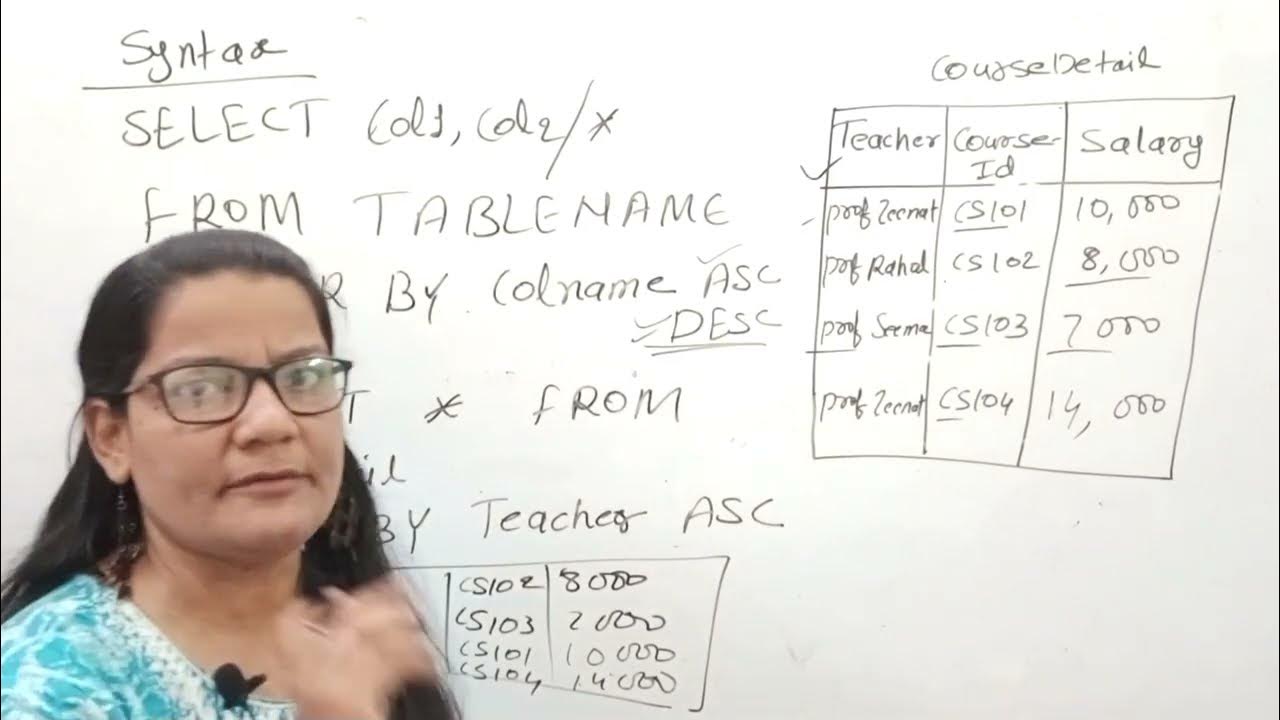 Syntax
SELECT Col1, Col2/*
FROM TABLENAME
R BY Colname ASC
DESC
T * FROM
il
BY Teacher ASC
CS102 8000
CS103 7000
CS101 10000
CS104 14000
CourseDetail
Teacher Course-Id Salary
prof Zeenat CS101 10,000
prof Rahul CS102 8,000
prof Seema CS103 7000
prof Zeenat CS104 14,000